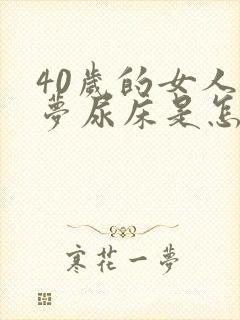 40歲的女人
夢尿床是怎
寒花一夢